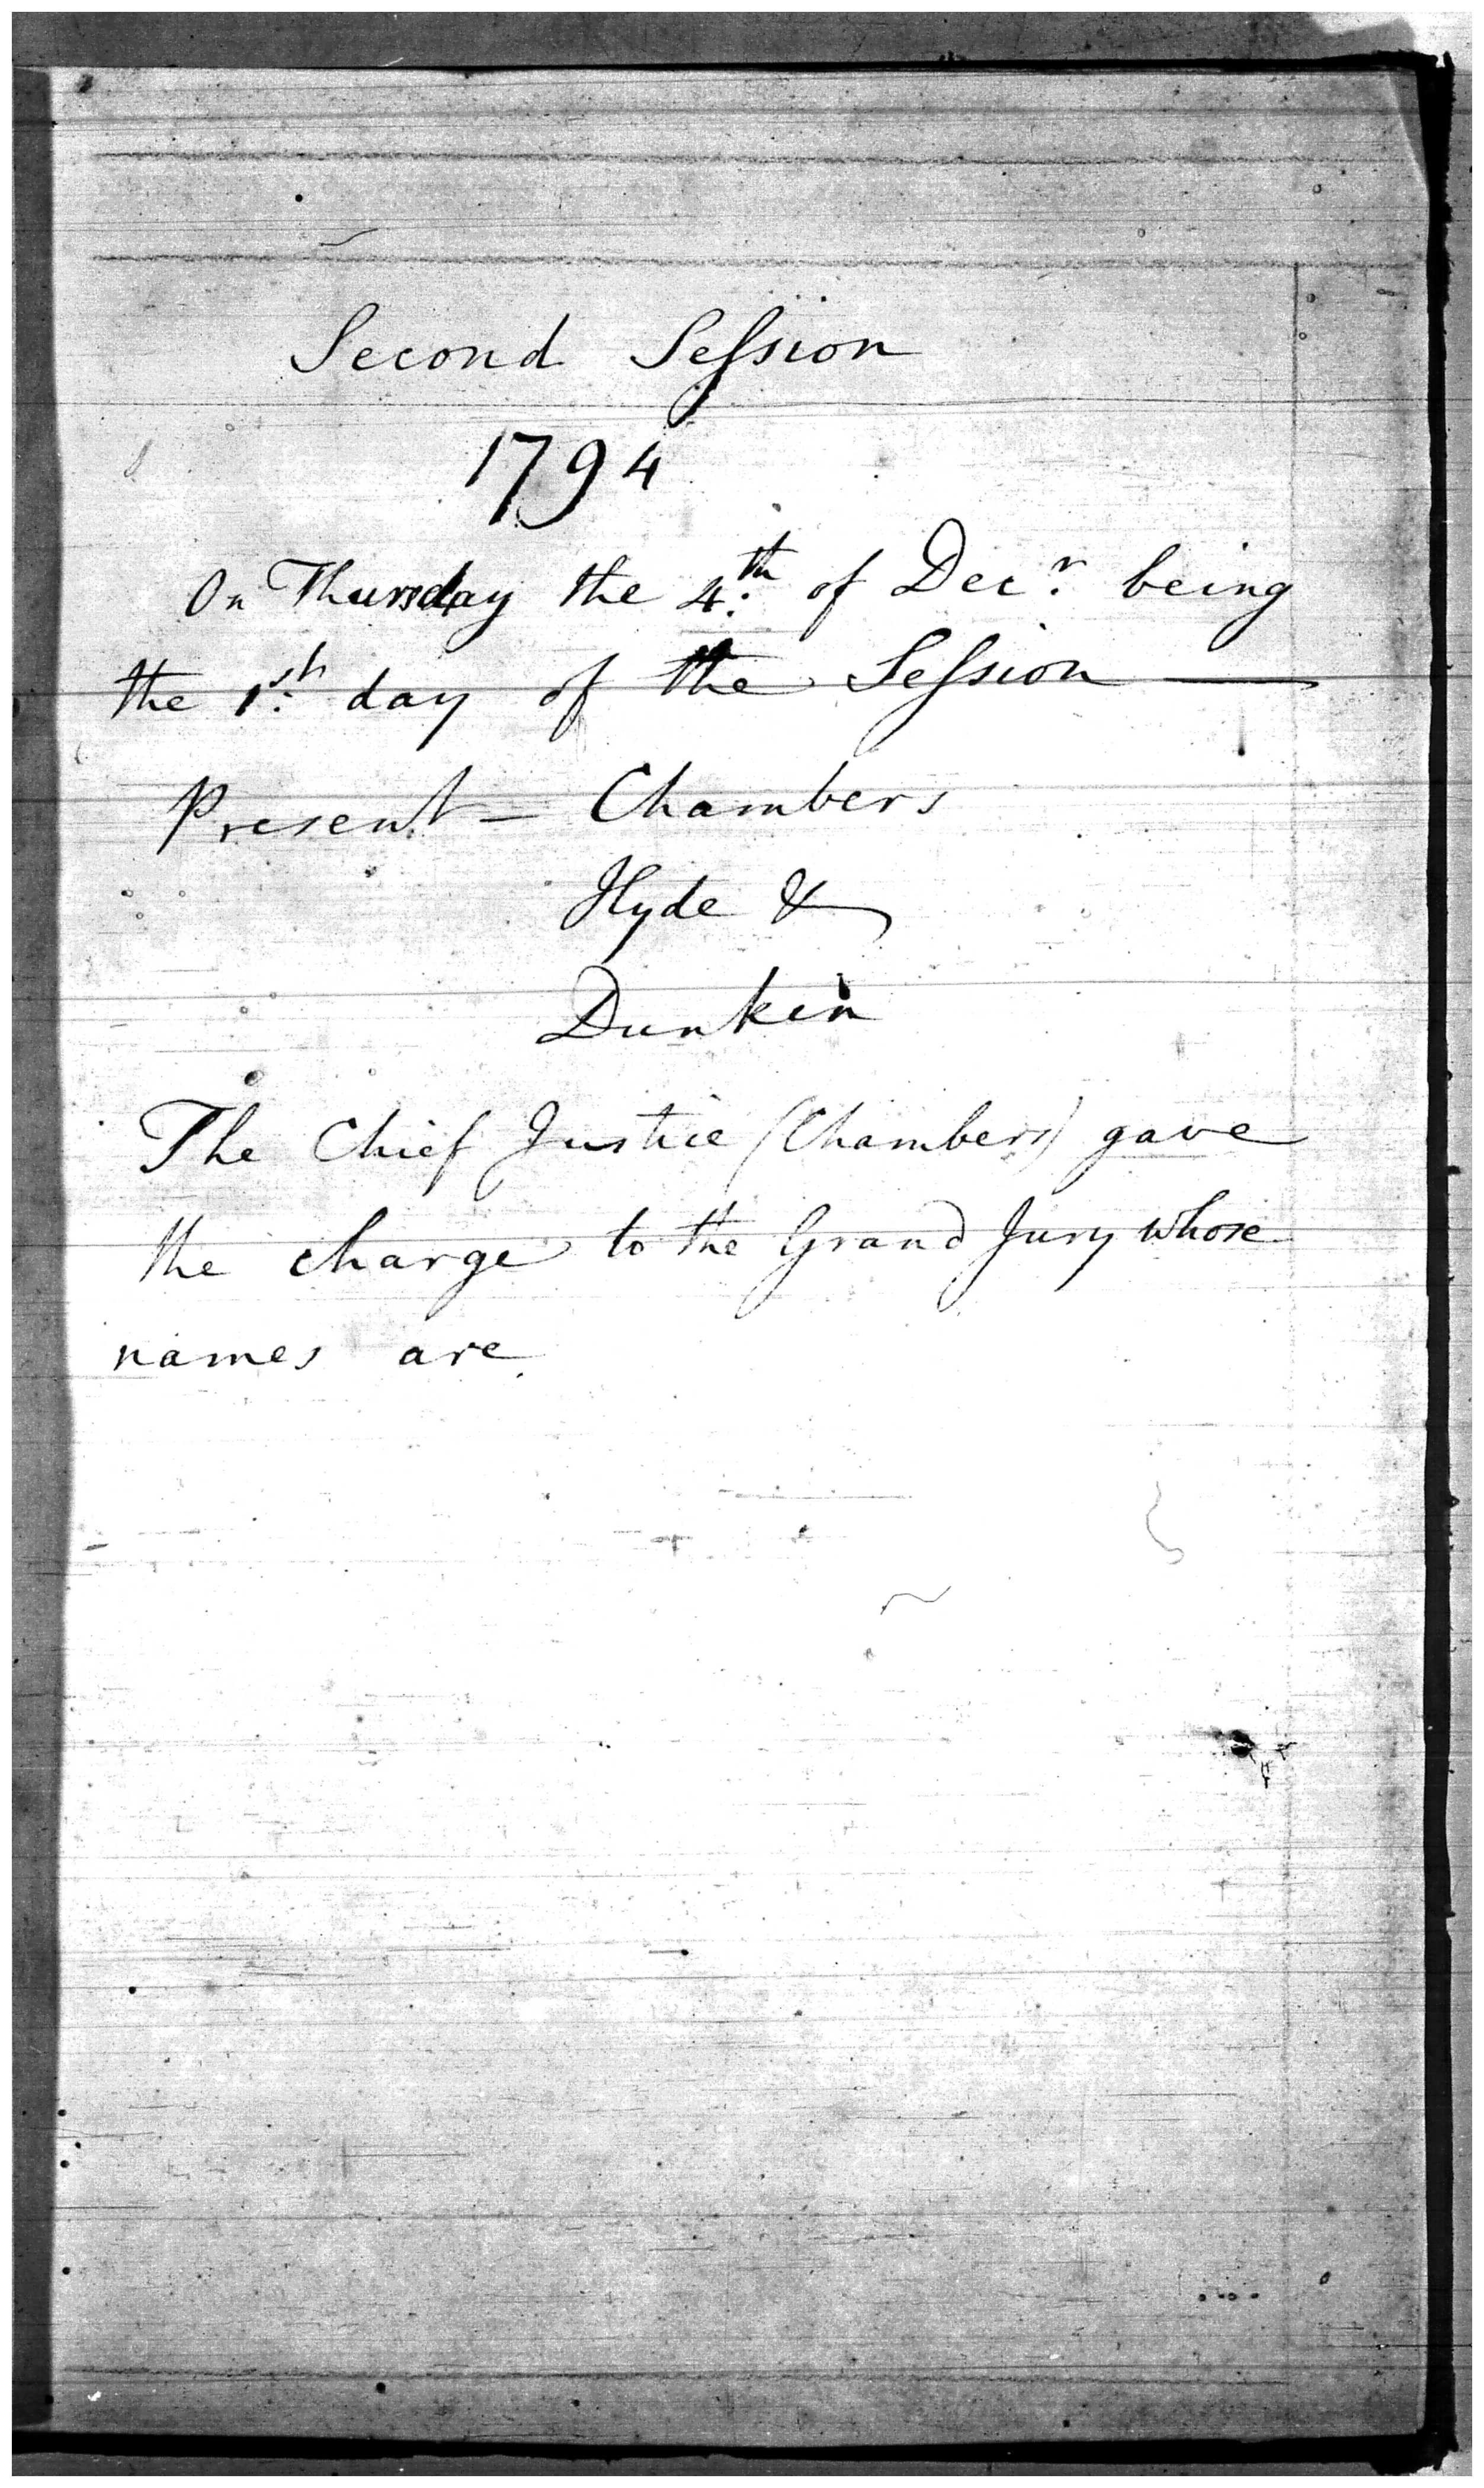 Second Seſsion
1794
On Thursday the 4th of Decr being
the 1st day of the Seſsion —
Present — Chambers
Hyde &
Dunkin
The Chief Justice (Chambers) gave
the charge to the Grand Jury whose
names are